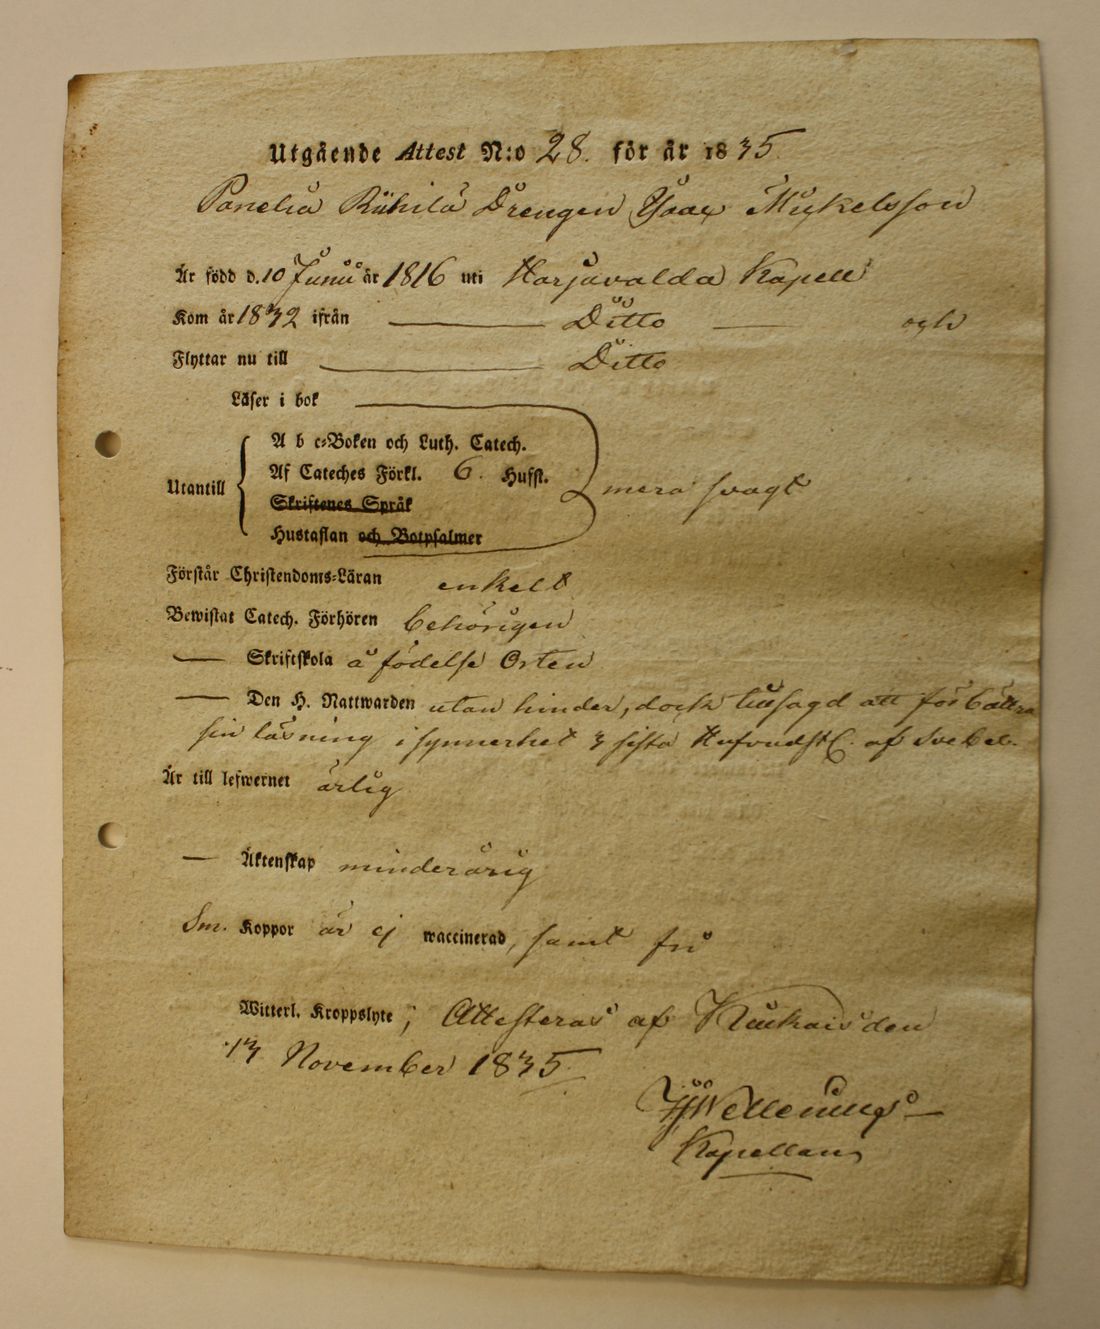 Utgående Attest N:o 28. för år 1835.
Panelia Riihilä Drengen Isac Mickelsson
Är född d. 10 Junii år 1816 uti Harjavalda Kapell
Kom år 1832 ifrån — Ditto — och
Flyttar nu till — Ditto
Läser i bok
A b c-Boken och Luth. Catech.
Af Cateches Förkl. 6. Hufst.
Utantill mera svagt
Skriftenes Språk
Hustaflan och Botpsalmer
Förstår Christendoms-Läran enkelt
Bewistat Catech. Förhören behörigen
— Skriftskola å födelse Orten
— Den H. Nattwarden utan hinder, dock tillsagd att förbättra
sin läsning i synnerhet 3 sista Hufvudst. af Svebel.
Är till lefwernet ärlig
— Äktenskap minderårig
Sm. Koppor är ej waccinerad, samt fri
Witterl. Kroppslyte; Attesteras af Kiukais den
13 November 1835.
Kapellan